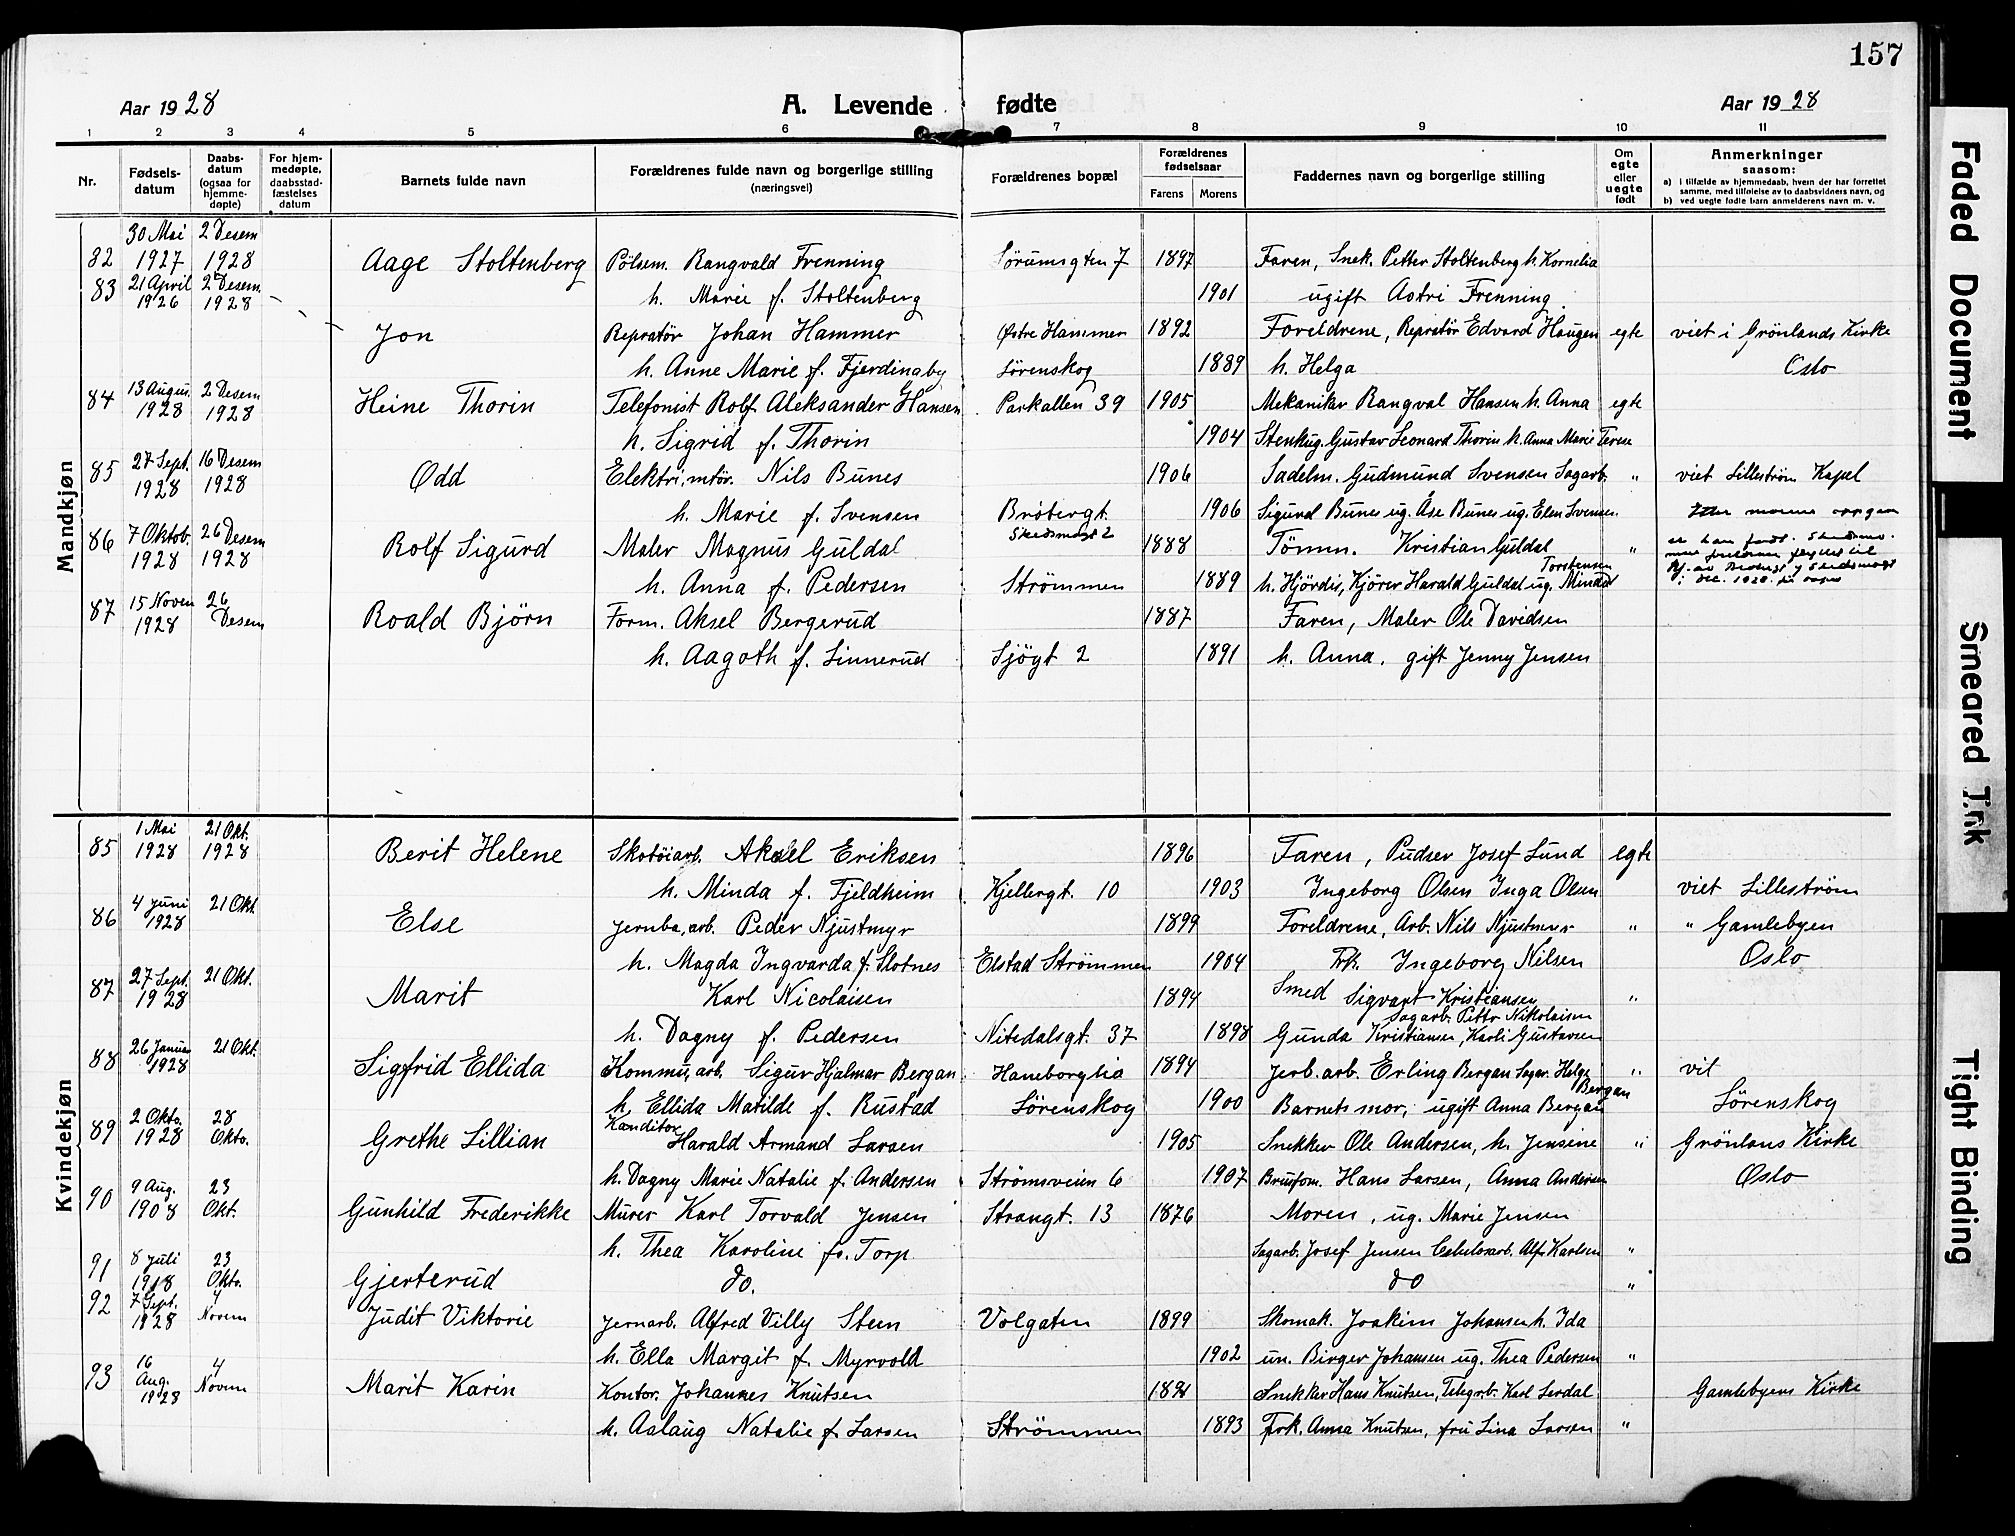 157
Aar 1928 A. Levende fødte Aar 1928
1 2 3 4 5 6 7 8 9 10 11
Nr. Fødsels-datum Daabs-datum (ogsaa for hjemme-døpte) For hjem-medøpte, daabsstad-fæstelses datum Barnets fulde navn Forældrenes fulde navn og borgerlige stilling (næringsvei) Forældrenes bopæl Forældrenes fødselsaar Farens Morens Faddernes navn og borgerlige stilling Om egte eller uegte født Anmerkninger saasom: a) I tilfælde av hjemmedaab, hvem der har forrettet samme, med tilføielse av to daabsvidners navn, og b) ved uegte fødte barn anmelderens navn m. v.
Mandkjøn
82 30 Mai 1927 2 Desem 1928 Aage Stoltenberg Pölsem. Rangvald Frenning Sörumsgten 7 1897 Faren, Snek. Petter Stoltenberg h. Kornelia
h. Marie f. Stoltenberg 1901 ugift Astri Frenning
83 21 April 1926 2 Desem 1928 Jon Repratör Johan Hammer Østre Hammer 1892 Foreldrene, Repratör Edvard Haugen egte viet i Grönlands Kirke
h. Anne Marie f. Fjerdingby Lörenskog 1889 h. Helga Oslo
84 13 Augus. 1928 2 Desem 1928 Heine Thorin Telefonist Rolf Aleksander Hansen Parkallen 39 1905 Mekaniker Rangval Hansen h. Anna egte
h. Sigrid f. Thorin 1904 Stenhug. Gustav Leonard Thorin h. Anna Marie Terese
85 27 Sept. 1928 16 Desem 1928 Odd Elektri, mtör. Nils Bunes 1906 Sadelm. Gudmund Svensen Sagarb. " viet Lilleström Kapel
h. Marie f. Svensen Bröbergt. 1906 Sigurd Bunes ug. Åse Bunes ug. Elen Svensen.
Skedsmogt 2
86 7 Oktob. 1928 26 Desem 1928 Rolf Sigurd Maler Magnus Guldal 1888 Tömm. Kristian Guldal "
h. Anna f. Pedersen Strömmen 1889 h. Hjördis, Kjörer Harald Guldal ug. Minda Torstensen
87 15 Novem 1928 26 Desem Roald Bjørn Form. Aksel Bergerud 1887 Faren, Maler Ole Davidsen
h. Aagoth f. Linnerud Sjögt 2 1891 h. Anna, gift Jenny Jensen
Kvindekjøn
85 1 Mai 1928 21 Okt. 1928 Berit Helene Skotöiarb. Aksel Eriksen 1896 Faren, Pudser Josef Lund egte
h. Minda f. Fjeldheim Kjellergt. 10 1903 Ingeborg Olsen Inga Olsen viet Lilleström
86 4 Juni 1928 21 Okt Else Jernba, arb. Peder Njustmyr 1899 Foreldrene, Arb. Nils Njustmyr " " Gamlebyen
h. Magda Ingvarda f. Slotnes Elstad Strömmen 1904 Frk. Ingeborg Nilsen Oslo
87 27 Sept. 1928 21 Okt. Marit Karl Nicolaisen 1894 Smed Sigvart Kristiansen "
Sagarb. Petter Nikolaisen
h. Dagny f. Pedersen Nitedalsgt. 37 1898 Gunda Kristiansen, Karli Gustavsen
88 26 Januar 1928 21 Okt. Sigfrid Ellida Kommu, arb. Sigur Hjalmar Bergan Haneborglia 1894 Jerb. arb. Erling Bergan Sagar. Helge Bergan " vit
h. Ellida Matilde f. Rustad Lörenskog 1900 Barnets mor, ugift Anna Bergan Lörenskog
89 2 Okto. 1928 28 Okto. Grethe Lillian Kanditor Harald Armand Larsen 1905 Snekker Ole Andersen, h. Jensine " Grönlans Kirke
h. Dagny Marie Natalie f. Andersen Strömsveien 6 1907 Brusfom. Hans Larsen, Anna Andersen Oslo
90 9 Aug. 1908 23 Okt. Gunhild Frederikke Murer Karl Torvald Jensen Strangt. 13 1876 Moren, ug. Marie Jensen
h. Thea Karoline fö. Torp Sagarb. Josef Jensen Celulosarb. Alf Karlsen "
91 8 Juli 1918 23 Okto. Gjerterud do. do "
92 7 Sept. 1928 4 Novem Judit Viktorie Jernarb. Alfred Villy Steen Volgaten 1899 Skomak. Joakim Johansen h. Ida
h. Ella Margit f. Myrvold 1902 un. Birger Johansen ug. Thea Pedersen "
93 16 Aug. 1928 4 Novem Marit Karin Kontor. Johannes Knutsen 1891 Snekker Hans Knutsen, Telegrb. Karl Lerdal Gamlebyens Kirke
h. Aslaug Natalie f. Larsen Strömmen 1893 Frk. Anna Knutsen, fru Lina Larsen "
Faded Document
Smeared Ink
Tight Binding